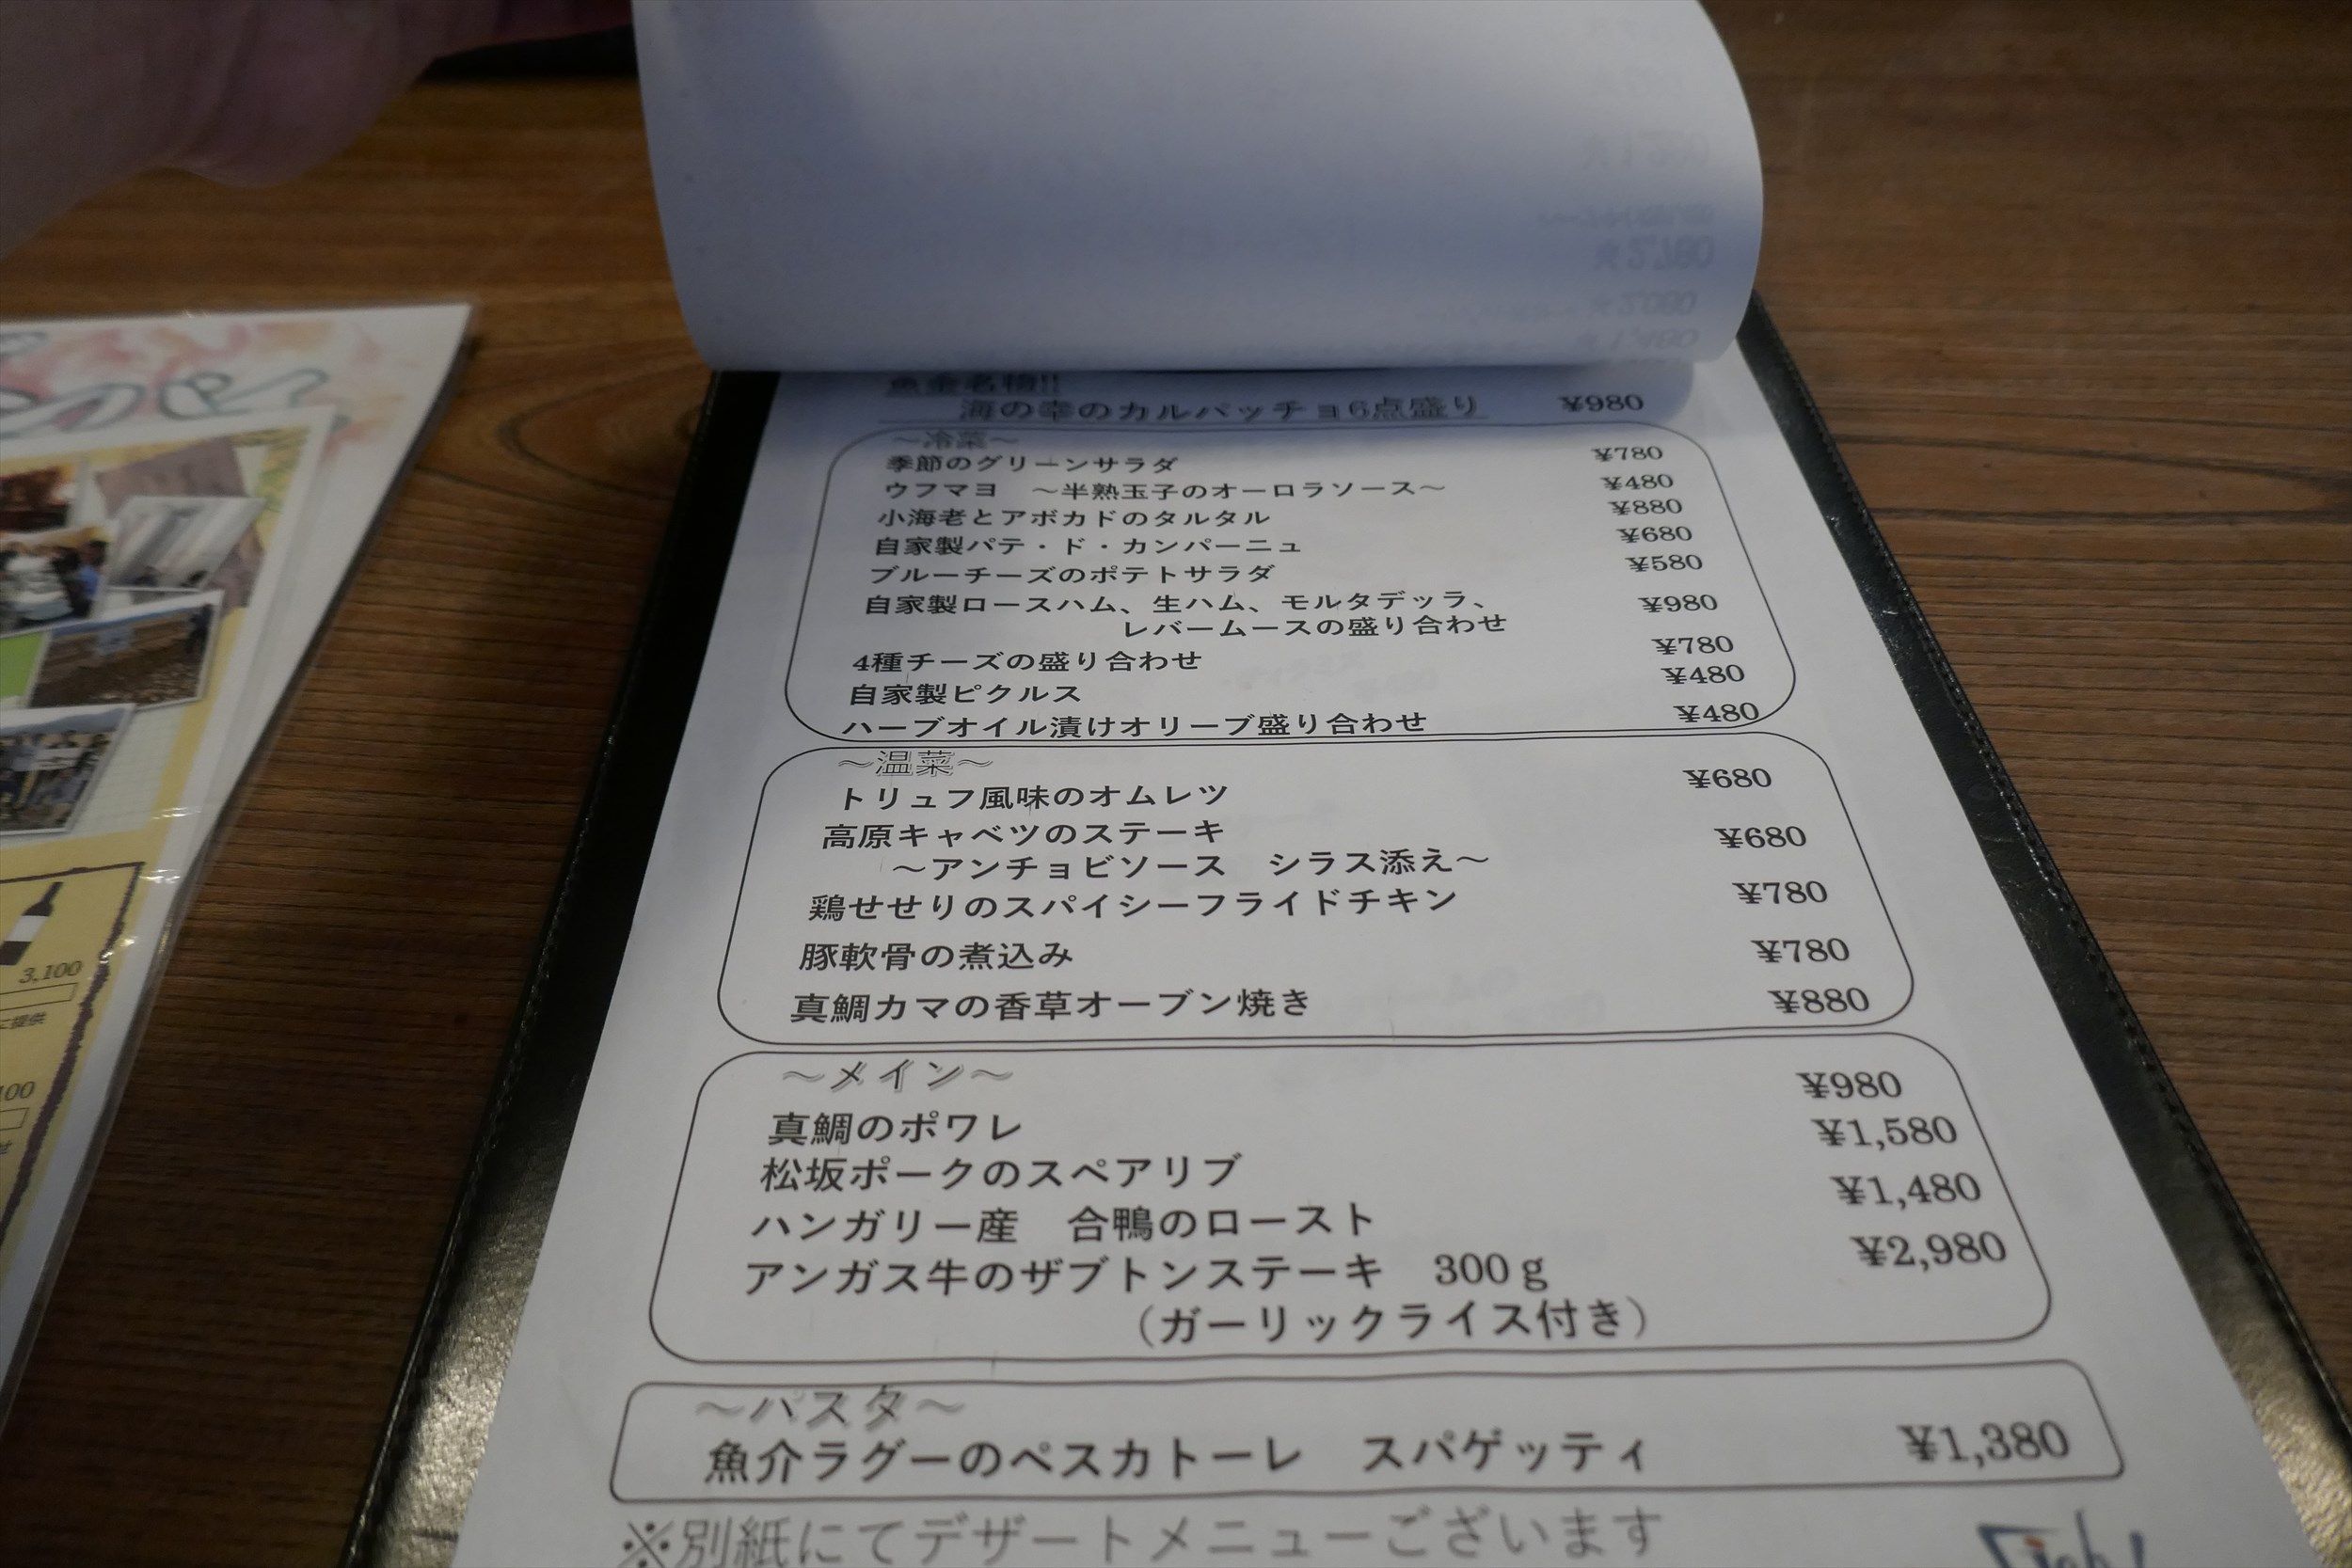 魚金名物!!
海の幸のカルパッチョ6点盛り ¥980
～冷菜～
季節のグリーンサラダ ¥780
ウフマヨ ～半熟玉子のオーロラソース～ ¥480
小海老とアボカドのタルタル ¥880
自家製パテ・ド・カンパーニュ ¥680
ブルーチーズのポテトサラダ ¥580
自家製ロースハム、生ハム、モルタデッラ、 ¥980
レバームースの盛り合わせ
4種チーズの盛り合わせ ¥780
自家製ピクルス ¥480
ハーブオイル漬けオリーブ盛り合わせ ¥480
～温菜～
トリュフ風味のオムレツ ¥680
高原キャベツのステーキ ¥680
～アンチョビソース シラス添え～
鶏せせりのスパイシーフライドチキン ¥780
豚軟骨の煮込み ¥780
真鯛カマの香草オーブン焼き ¥880
～メイン～
真鯛のポワレ ¥980
松坂ポークのスペアリブ ¥1,580
ハンガリー産 合鴨のロースト ¥1,480
アンガス牛のザブトンステーキ 300g ¥2,980
（ガーリックライス付き）
～パスタ～
魚介ラグーのペスカトーレ スパゲッティ ¥1,380
※別紙にてデザートメニューございます
3,100
に提供